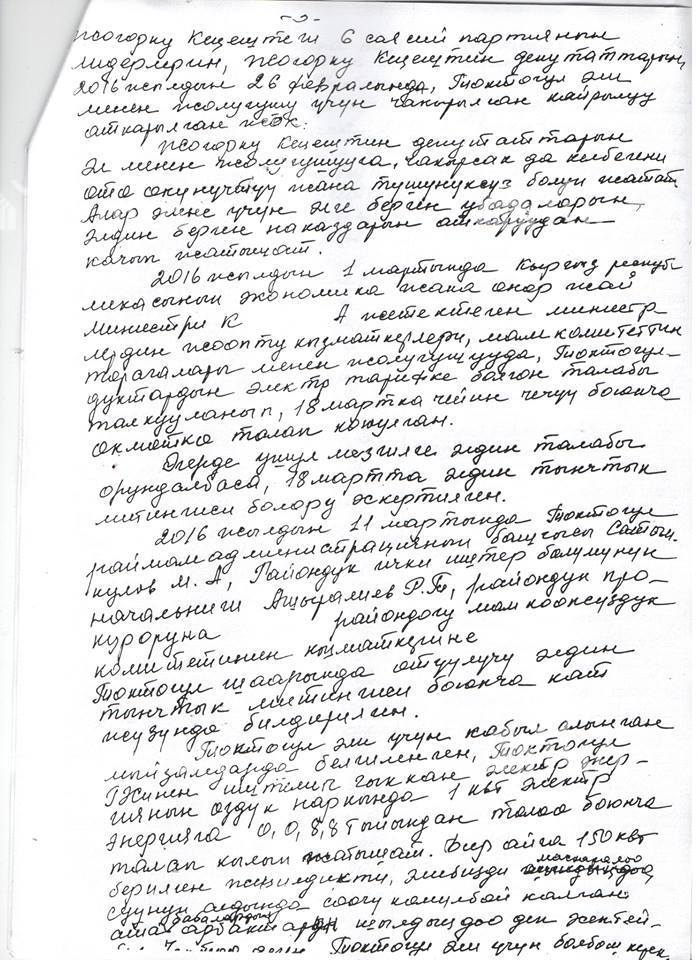 - 3 -
Жогорку Кеңештеги 6 саясий партиянын
лидерлерин, Жогорку Кеңештин депутаттарын,
2016 жылдын 26 февралында, Токтогул эли
менен жолугушу үчүн чакырылган кайрылуу
аткарылган жок.
Жогорку Кеңештин депутаттарын
эл менен жолугушууга, чакырсак да келбегени
өтө өкүнүчтүү жана түшүнүксүз болуп жатат.
Алар эмне үчүн элге берген убадаларын,
элдин берген наказдарын аткаруудан
качып жатышат.
2016 жылдын 1 мартында Кыргыз респуб
ликасынын экономика жана өнөр жай
министри К А жетектеген министр
лердин жооптуу кызматкерлери, мамкомитеттин
төрагалары менен жолугушууда, Токтогул-
дуктардын электр тарифке болгон талабы
талкууланып, 18 мартка чейин чечүү боюнча
өкмөткө талап коюлган.
Эгерде ушул мезгилге элдин талабы
орундалбаса, 18 мартта элдин тынчтык
митингиси болору эскертилген.
2016 жылдын 11 мартында Токтогул
раймамадминистрациянын башчысы Сатып
кулов М. А, Райондук ички иштер бөлүмүнүн
начальниги Ашыралиев Р.Т, райондук про-
куроруна райондогу мамкоопсуздук
комитетинен кызматкерине
Токтогул шаарында өтүүчү элдин
тынчтык митингиси боюнча кат
жүзүндө билдирилген.
Токтогул эли үчүн кабыл алынган
мыйзамдарда белгиленген, Токтогул
ГЭСинен иштелип чыккан электр энер-
гиянын өздүк наркында 1 квт электр
энергияга 0,0,8,8 тыйындан төлөө боюнча
талап кылып жатышат. Бир айга 150 квт
берилген жеңилдикти, элибизди маскаралоо
суунун алдында соогу көмүлбөй калган
ата бабалардын арбактарын кылдыңдоо деп эсептей-
Токтогул эли үчүн